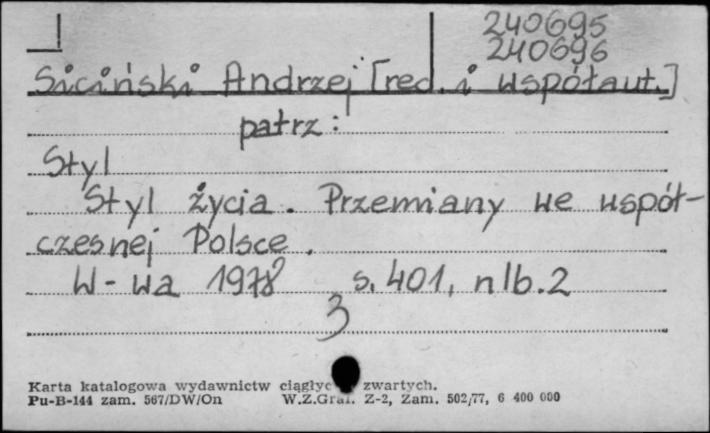 240695
240696
Siciński Andrzej [red. i współaut.]
patrz:
Styl
Styl życia. Przemiany we współ-
czesnej Polsce.
W-wa 1978 s. 401, nlb. 2
3
Karta katalogowa wydawnictw ciągłyc zwartych.
Pu-B-144 zam. 567/DW/On W.Z.Graf. Z-2, Zam. 502/77, 6 400 000